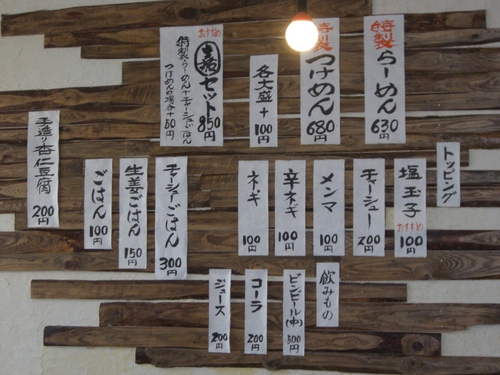 特製
らーめん
630円
特製
つけめん
680円
各大盛+
100円
おすすめ
セット
850円
特製らーめん+チャーシューごはん
つけめんの場合+50円
トッピング
塩玉子
おすすめ
100円
チャーシュー
200円
メンマ
100円
辛ネギ
100円
ネギ
100円
チャーシューごはん
300円
生姜ごはん
150円
ごはん
100円
手造り杏仁豆腐
200円
飲みもの
ビンビール(中)
500円
コーラ
200円
ジュース
200円